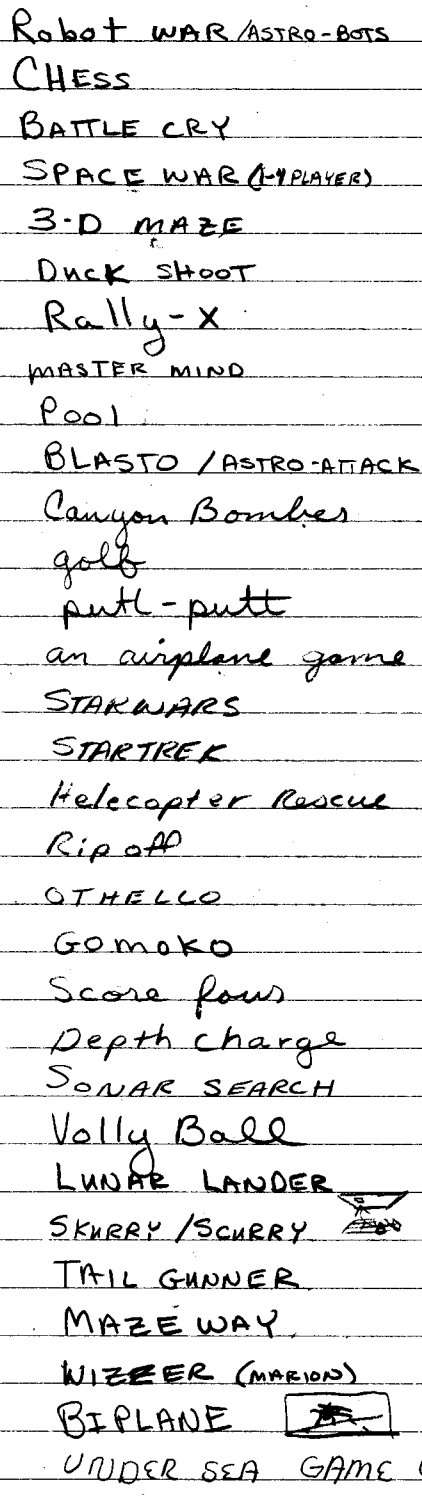 Robot WAR/ASTRO-BOTS
CHESS
BATTLE CRY
SPACE WAR (1-4 PLAYER)
3-D MAZE
Duck SHOOT
Rally-X
MASTER MIND
Pool
BLASTO / ASTRO-ATTACK
Canyon Bomber
golf
putt-putt
an airplane game
STARWARS
STARTREK
Helecopter Rescue
Rip off
OTHELLO
GOMOKO
Score four
Depth charge
SONAR SEARCH
Volly Ball
LUNAR LANDER
SKURRY/SCURRY
TAIL GUNNER
MAZE WAY
WIZZER (MARION)
BIPLANE
UNDER SEA GAME